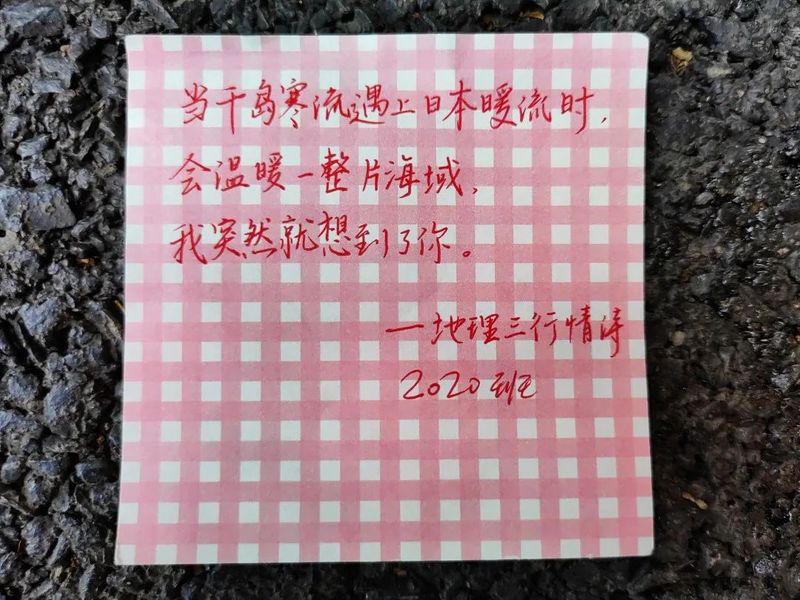 当千岛寒流遇上日本暖流时,
会温暖一整片海域,
我突然就想到了你。
—地理三行情诗
2020班